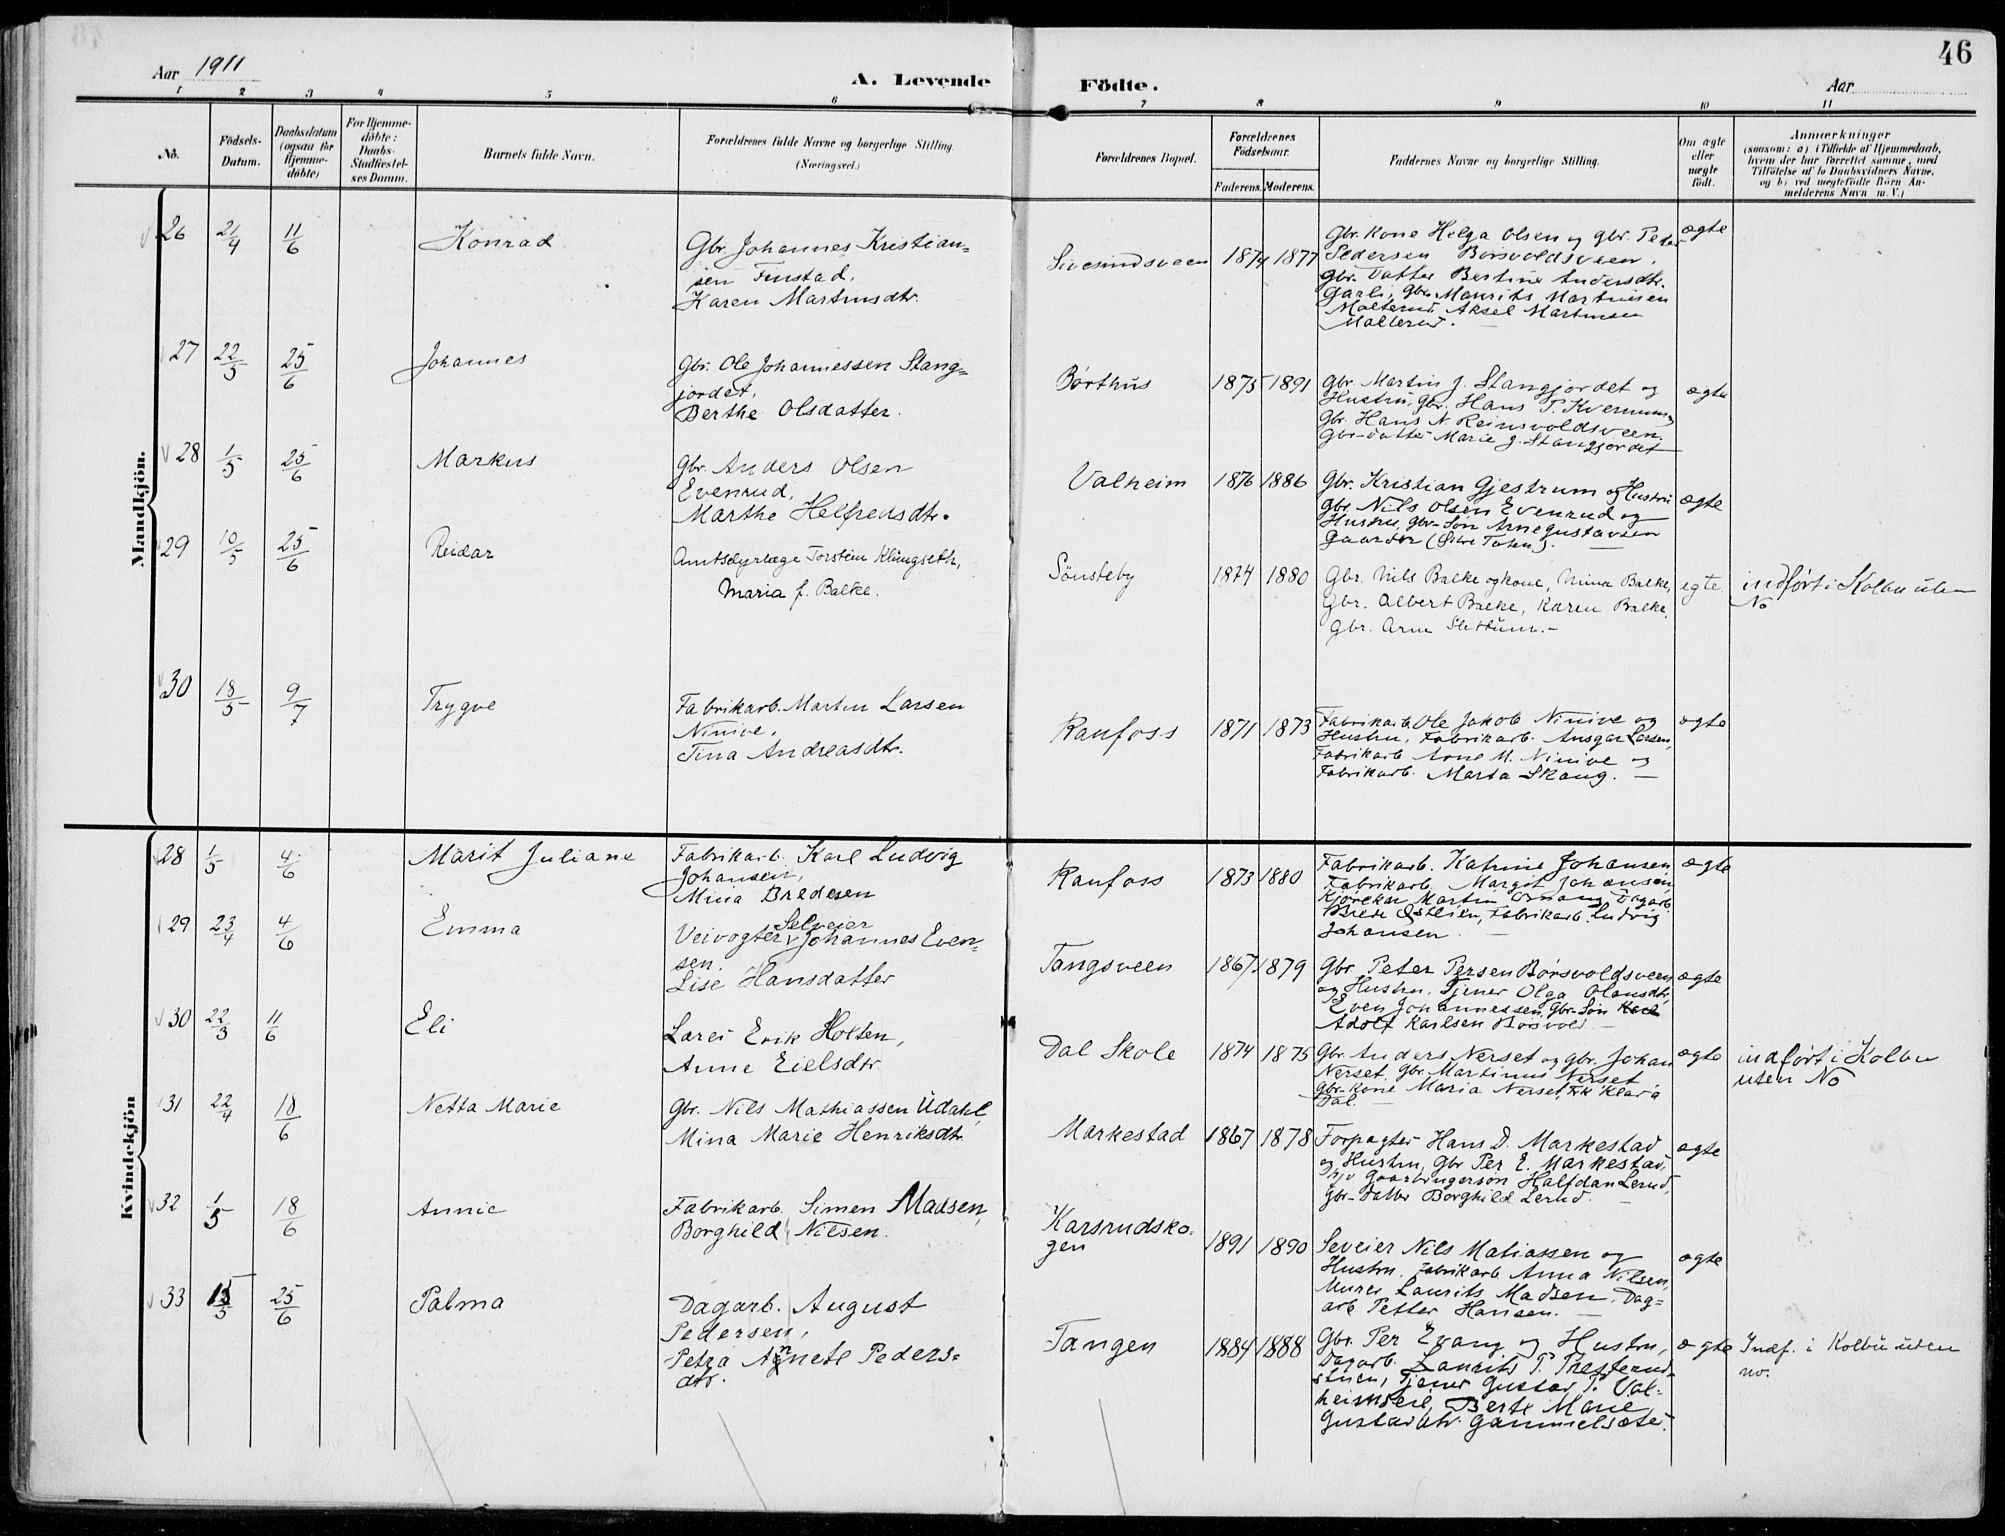 46
Aar 1911
A. Levende Födte.
Aar
1 2 3 4 5 6 7 8 9 10 11
No.
Födsels-Datum.
Daabsdatum (ogsaa for Hjemme-döbte)
For Hjemme-döbte: Daabs-Stadfæstel-ses Datum.
Barnets fulde Navn.
Forældrenes fulde Navne og borgerlige Stilling. (Næringsvei.)
Forældrenes Bopæl.
Forældrenes Födselsaar.
Faderens. Moderens.
Faddernes Navne og borgerlige Stilling.
Om ægte eller uægte född.
Anmærkninger
(saasom: a) i Tilfælde af Hjemmedaab,
hvem der har forrettet samme, med
Tilföielse af to Daabsvidners Navne,
og b) ved uægtefödte Börn An-
melderens Navn m. V.)
Mandkjön.
26 21/4 11/6 Konrad
Gbr. Johannes Kristian=
sen Finstad,
Karen Martinsdtr.
Sivesindsveen 1874 1877
Gbr. kone Helga Olsen og gbr. Peter
Pedersen Børsvoldsveen,
Gbr. Datter Bertine Andersdtr.
Gaarli, Gbr. Maurits Martinsen
Malterud, Aksel Martinsen
Malterud.
ægte
27 22/3 25/6 Johannes
Gbr. Ole Johannessen Stang=
jordet,
Berthe Olsdatter.
Børthus 1875 1891
Gbr. Martin J. Stangjordet og
Hustru, gbr. Hans P. Kvernum
Gbr. Hans N. Reinsvoldsveen,
Gbr-datter Marie J. Stangjordet
ægte
28 1/5 25/6 Markus
Gbr. Anders Olsen
Evenrud,
Marthe Helfredsdtr.
Valheim 1876 1886
Gbr. Kristian Gjestrum og Hustru
gbr. Nils Olsen Evenrud og
Hustru, gbr-Søn Arne Gustavsen
Gaarder
ægte
29 10/5 25/6 Reidar
Amtsdyrlæge Torstein Klungseth,
Maria f. Balke.
Sönsteby 1874 1880
Gbr. Nils Balke og kone, Mina Balke,
Gbr. Albert Balke, Karen Balke,
Gbr. Arne Slettum.-
egte
indført i Kolbu uten
No
30 18/5 9/7 Trygve
Fabrikarb. Martin Larsen
Ninive,
Tina Andreasdtr.
Raufoss 1871 1873
Fabrikarb. Ole Jakob Ninive og
Hustru, Fabrikarb. Ansgar Larsen,
Fabrikarb. Arne M. Ninive og
Fabrikarb. Marta Skaug.
ægte
Kvindekjön
28 1/5 4/6 Marit Juliane
Fabrikarb. Karl Ludvig
Johansen,
Mina Bredesen
Raufoss 1873 1880
Fabrikarb. Katrine Johansen,
Fabrikarb. Margit Johansen,
Kjørekar Martin Ornang, Dagarb.
Brede Østlien, Fabrikarb. Ludvig
Johansen
ægte
29 23/4 4/6 Emma
Selveier
Veivogter Johannes Even=
sen.
Lise Hansdatter
Tangsveen 1867 1879
Gbr. Peter Persen Børsvoldsveen
og Hustru, Tjener Olga Olausdtr,
Even Johannessen, Gbr-Søn Karl
Adolf Karlsen Børsvold
ægte
30 22/3 11/6 Eli
Lærer Erik Holten,
Anne Eielsdtr
Dal Skole 1874 1875
Gbr. Anders Nerset og gbr. Johan
Nerset, Gbr. Martinus Nerset
Gbr. kone Maria Nerset, Frk Klara
Dal.
ægte
indført i Kolbu
uten No
31 22/4 18/6 Netta Marie
Gbr. Nils Mathiassen Udahl,
Mina Marie Henriksdtr.
Markestad 1867 1878
Forpagter Hans D. Markestad
og Hustru, Gbr Per E. Markestad,
Gaardbrugersøn Halfdan Lerud,
Gbr-Datter Borghild Lerud.
ægte
32 1/5 18/6 Annie
Fabrikarb. Simen Madsen,
Borghild Nilsen.
Karsrudsko-
gen 1891 1890
Seveier Nils Matiassen og
Hustru, Fabrikarb. Anna Nilsen,
Murer Laurits Madsen, Dag=
arb Petter Hansen.
ægte
33 15/5 25/6 Palma
Dagarb. August
Pedersen,
Petra Agnete Peders=
dtr.
Tangen 1884 1888
Gbr. Per Evang og Hustru,
Dagarb. Laurits P. Presterud-
stuen, Tjener Gustav P. Val-
heimseie, Berte Marie
Gustavsdtr. Gammelsæter.
ægte
Indf. i Kolbu uten
no.